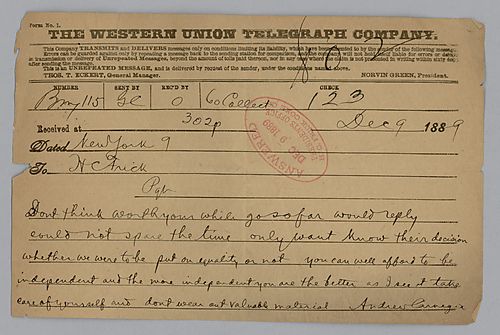 Form No. 1.
THE WESTERN UNION TELEGRAPH COMPANY.
This Company TRANSMITS and DELIVERS messages only on conditions limiting its liability, which have been assented to by the sender of the following message.
Errors can be guarded against only by repeating a message back to the sending station for comparison, and the company will not hold itself liable for errors or delays
in transmission or delivery of Unrepeated Messages, beyond the amount of tolls paid thereon, nor in any case where the claim is not presented in writing within sixty days
after sending the message.
This is an UNREPEATED MESSAGE, and is delivered by request of the sender, under the conditions named above.
THOS. T. ECKERT, General Manager. NORVIN GREEN, President.
NUMBER SENT BY REC'D BY CHECK
115 O 60 Collect 123
Received at 302p Dec 9 1889
Dated New York 9
To H C Frick
Pgh
ANSWERED
DEC 9 1889
Dont think worth your while go so far would reply
could not spare the time only want know their decision
whether we were to be put on equality or not you can well afford to be
independent and the more independent you are the better as I see it take
care of yourself and dont wear out valuable material Andrew Carnegie